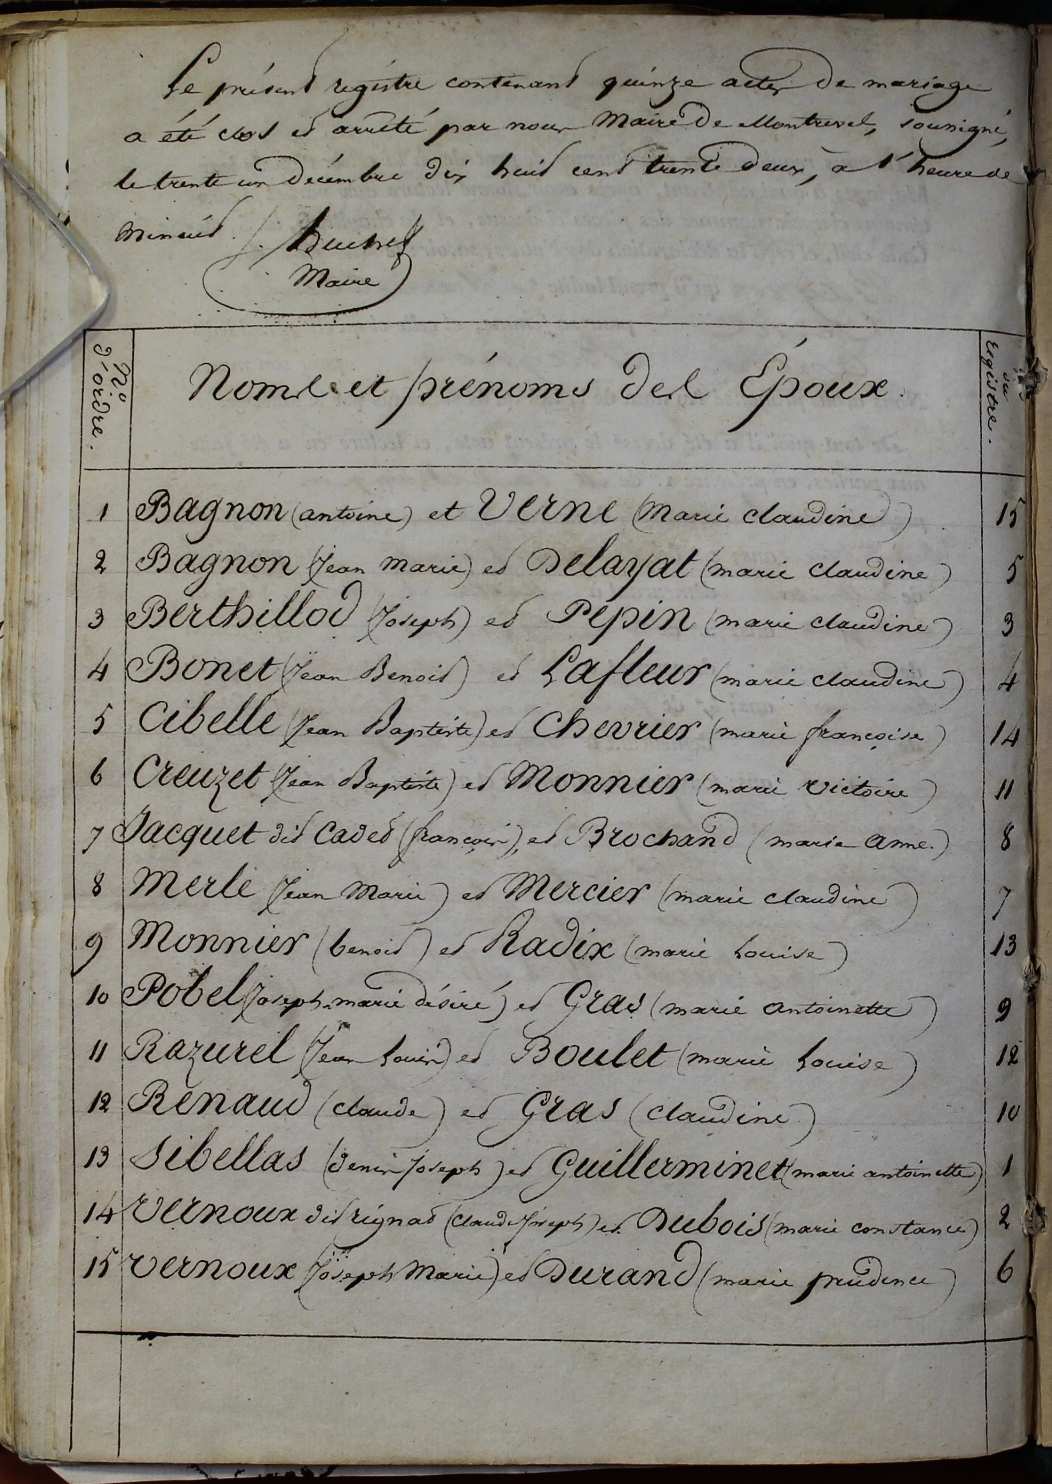 Le présent registre contenant quinze actes de mariage
a été clos et arrêté par nous Maire de Montrevel, soussigné,
le trente un décembre dix huit cent trente deux, à l'heure de
minuit.
Maire
N.o d'ordre.
Noms et prénoms des Époux.
du registre.
1 Bagnon (antoine) et Verne (Marie claudine) 15
2 Bagnon (Jean Marie) et Delayat (marie claudine) 5
3 Berthillod (Joseph) et Pepin (marie claudine) 3
4 Bonet (Jean Benoit) et Lafleur (marie claudine) 4
5 Cibelle (Jean Baptiste) et Chevrier (marie françoise) 14
6 Creuzet (Jean Baptiste) et Monnier (marie victoire) 11
7 Jacquet dit Cadet (françois), et Brochand (marie anne.) 8
8 Merle (Jean Marie) et Mercier (marie claudine) 7
9 Monnier (benoit) et Radix (marie Louise) 13
10 Pobel (Joseph marie désiré) et Gras (marie antoinette) 9
11 Razurel (Jean Louis) et Boulet (marie Louise) 12
12 Renaud (claude) et Gras (claudine) 10
13 Sibellas (denis Joseph) et Guillerminet (marie antoinette) 1
14 Vernoux dit rignat (claude Joseph) et Dubois (marie constance) 2
15 Vernoux (Joseph Marie) et Durand (marie prudence) 6